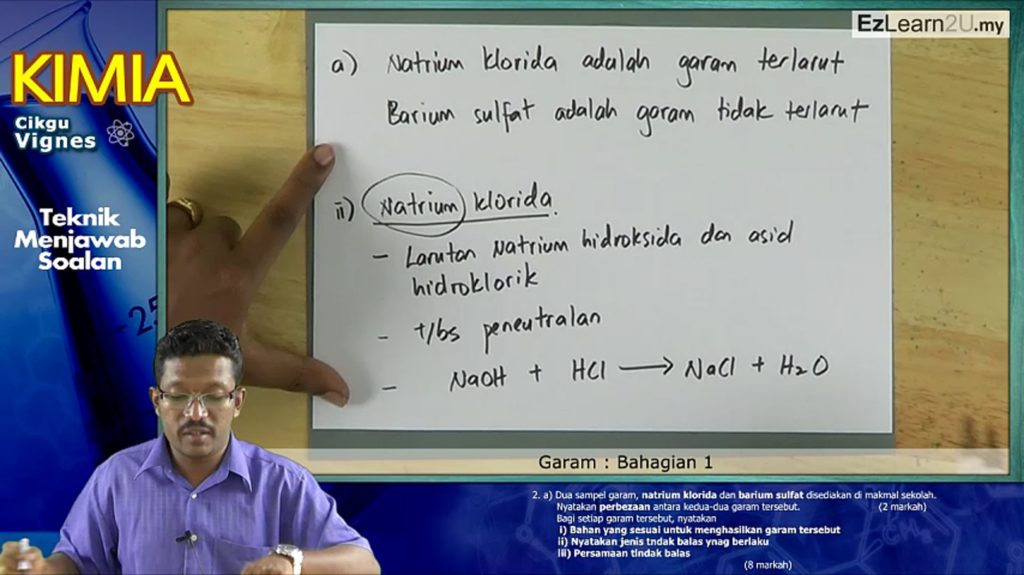 EzLearn2U.my
KIMIA
Cikgu
Vignes
Teknik
Menjawab
Soalan
-25
a) Natrium klorida adalah garam terlarut
Barium sulfat adalah garam tidak terlarut
ii) Natrium klorida.
- Larutan Natrium hidroksida dan asid
hidroklorik
- t/bs peneutralan
- NaOH + HCl → NaCl + H₂O
Garam : Bahagian 1
2. a) Dua sampel garam, natrium klorida dan barium sulfat disediakan di makmal sekolah.
Nyatakan perbezaan antara kedua-dua garam tersebut. (2 markah)
Bagi setiap garam tersebut, nyatakan
i) Bahan yang sesuai untuk menghasilkan garam tersebut
ii) Nyatakan jenis tndak balas ynag berlaku
iii) Persamaan tindak balas
(8 markah)